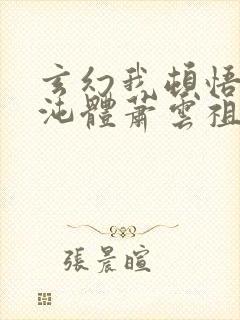 玄幻我頓悟
沌體蕭雲祖
張晨暄